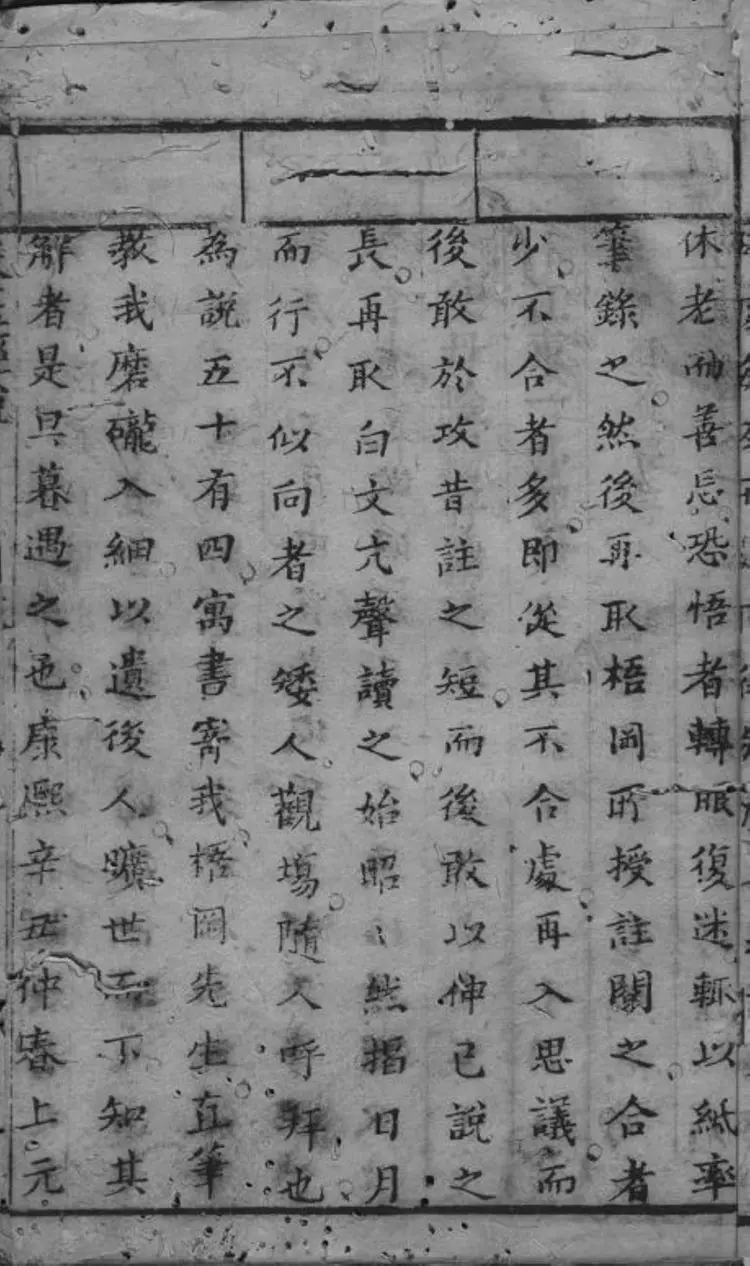 休老而善忘恐悟者轉眼復迷輒以紙率
筆錄之然後再取梧岡所授註閱之合者
少不合者多即從其不合處再入思議而
後敢於攻昔註之短而後敢以伸已說之
長再取白文尢聲讀之始昭〻然揭日月
而行不似向者之矮人觀塲隨人呼拜也
為說五十有四寓書寄我梧岡先生直筆
教我磨礲入細以遺後人曠世而下知其
解者是旦暮遇之也康熙辛丑仲春上元